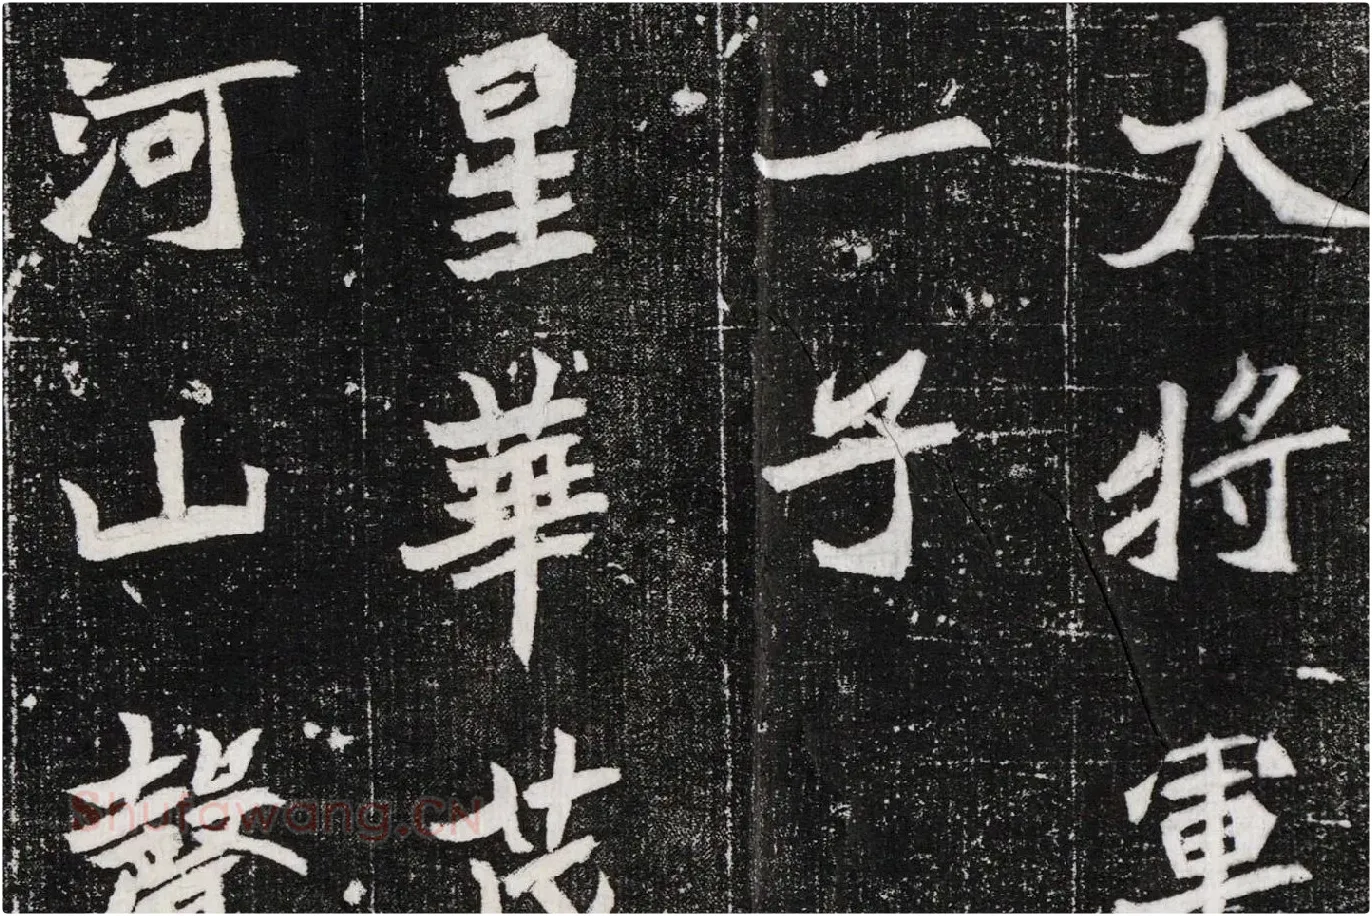 大将軍
一子
星華茂
河山聲
Shufawang.CN